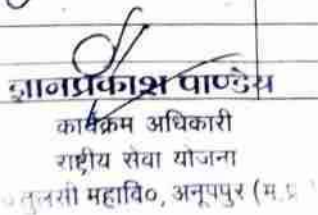 ज्ञानप्रकाश पाण्डेय
कार्यक्रम अधिकारी
राष्ट्रीय सेवा योजना
तुलसी महावि०, अनूपपुर (म.प्र